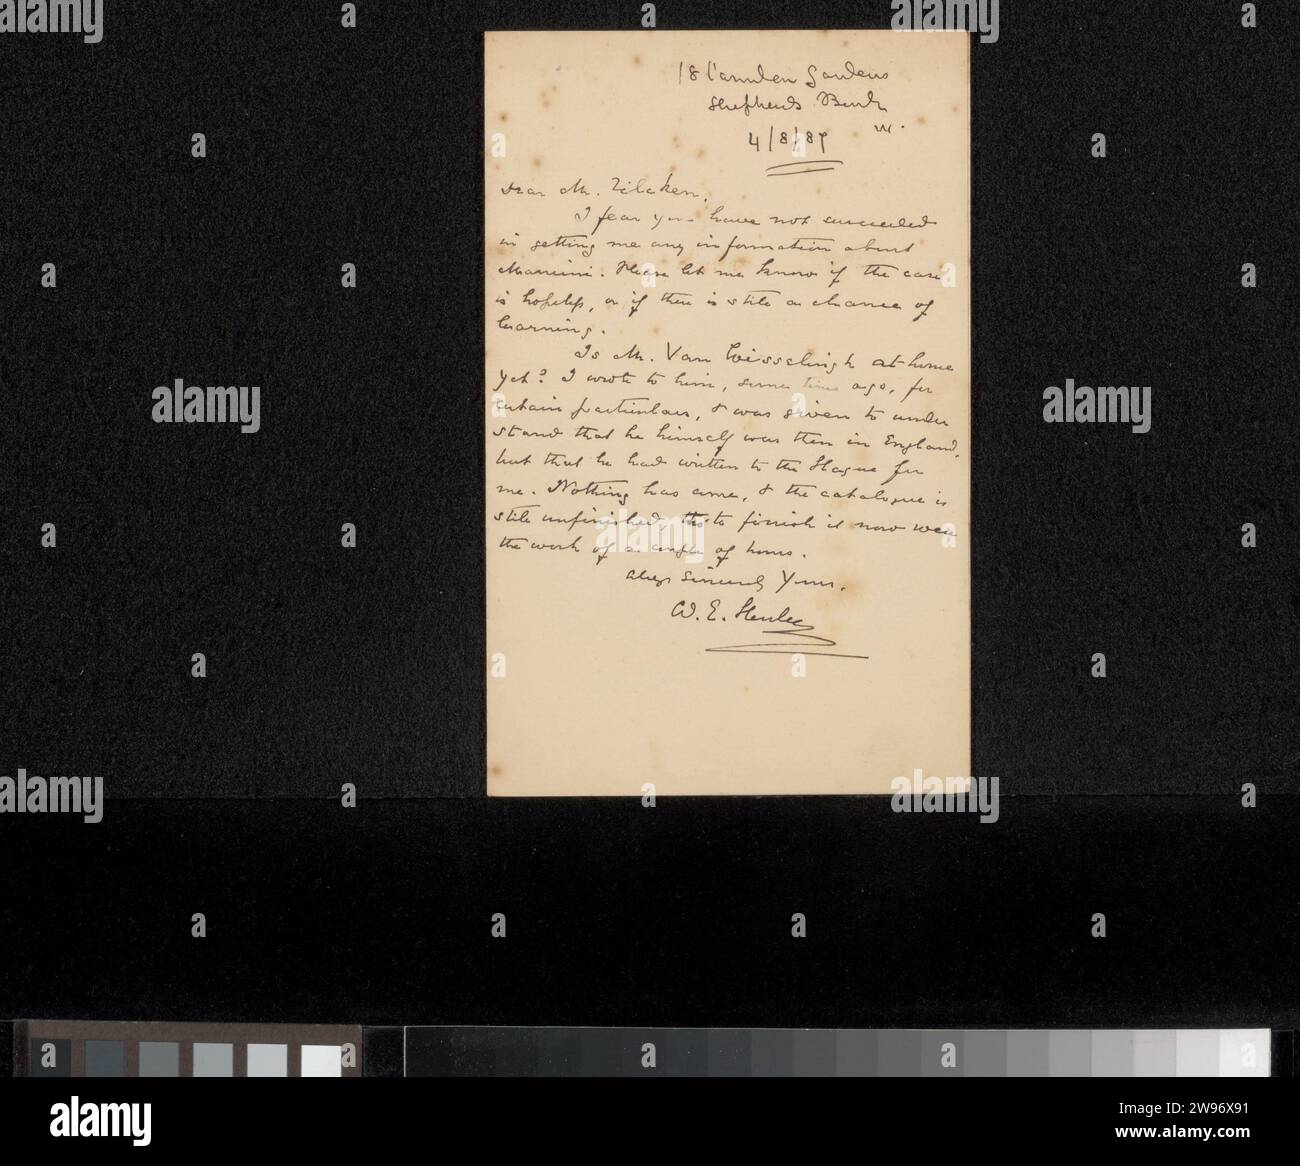 18 Camden Gardens
Shepherds Bush
W.
4/8/89
Dear Mr. Zilcken,
I fear you have not succeeded
in getting me any information about
Mancini. Please let me know if the case
is hopeless, or if there is still a chance of
learning.
Is Mr. Van Wisselingh at home
yet? I wrote to him, some time ago, for
certain particulars, & was given to under
stand that he himself was then in England,
but that he had written to the Hague for
me. Nothing has come, & the catalogue is
still unfinished, tho to finish it now were
the work of a couple of hours.
Always Sincerely Yours,
W. E. Henley
alamy
Image ID: 2W96X91
www.alamy.com